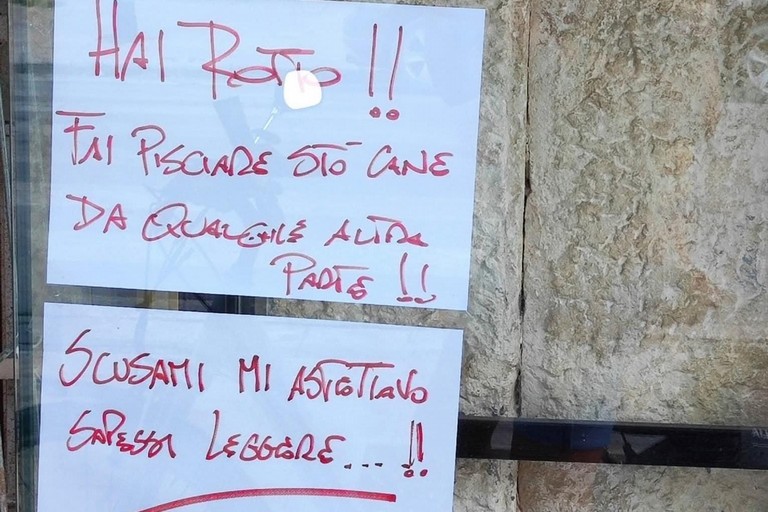 HAI ROTTO!!
FAI PISCIARE STO' CANE
DA QUALCHE ALTRA
PARTE!!
SCUSAMI MI ASPETTAVO
SAPESSI LEGGERE...!!